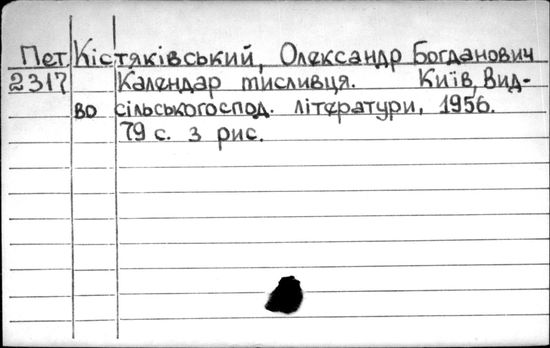 Пет Кістяківський, Олександр Богданович
2317 Календар мисливця. Київ, Вид-
во сільськогоспод. літератури, 1956.
79 с. з рис.